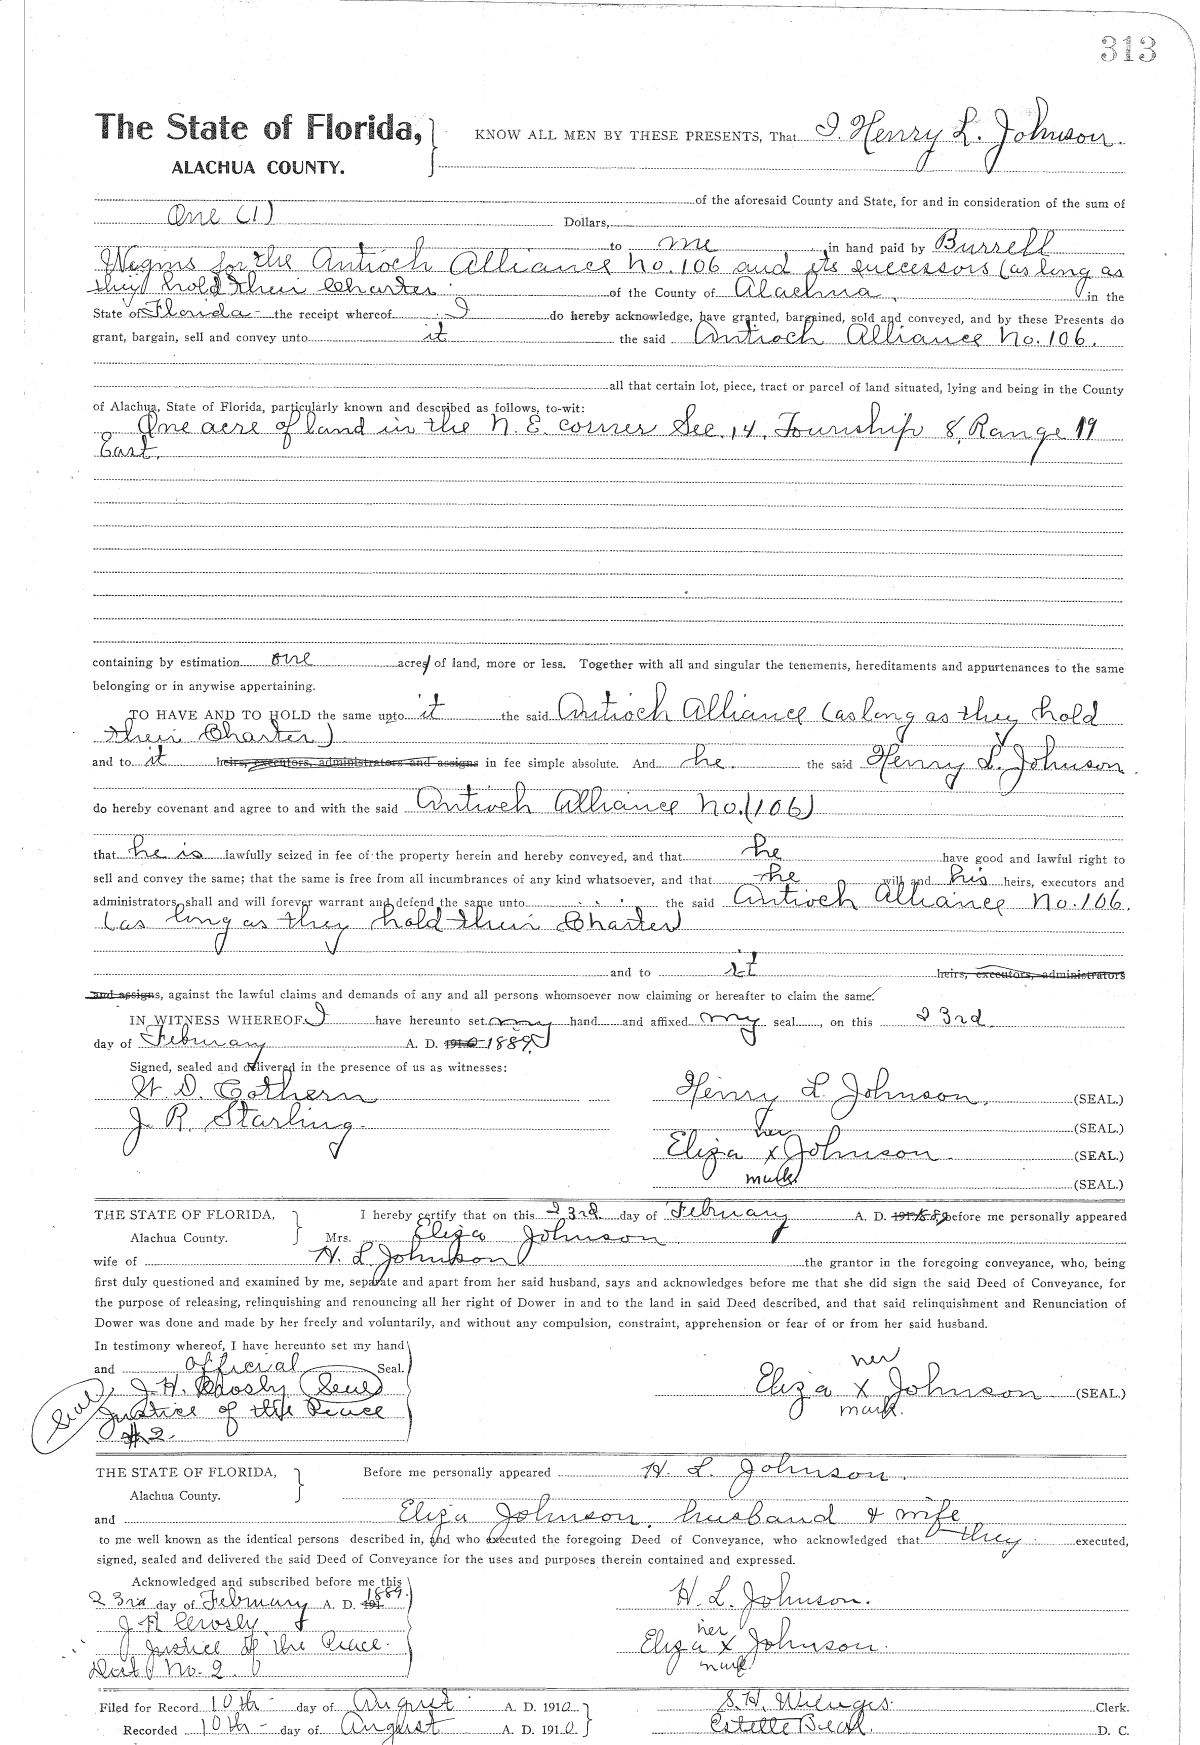 313
The State of Florida, KNOW ALL MEN BY THESE PRESENTS, That I. Henry L. Johnson.
ALACHUA COUNTY.
of the aforesaid County and State, for and in consideration of the sum of
One (1) Dollars,
to me in hand paid by Burrell
for the Antioch Alliance No. 106 and its successors (as long as
they hold their Charter of the County of Alachua, in the
State of Florida the receipt whereof I do hereby acknowledge, have granted, bargained, sold and conveyed, and by these Presents do
grant, bargain, sell and convey unto it the said Antioch Alliance No. 106.
all that certain lot, piece, tract or parcel of land situated, lying and being in the County
of Alachua, State of Florida, particularly known and described as follows, to-wit:
One acre of land in the N. E. corner Sec. 14, Township 8, Range 19
East.
containing by estimation one acres of land, more or less. Together with all and singular the tenements, hereditaments and appurtenances to the same
belonging or in anywise appertaining.
TO HAVE AND TO HOLD the same unto it the said Antioch Alliance (as long as they hold
their Charter)
and to it heirs, executors, administrators and assigns in fee simple absolute. And he the said Henry L. Johnson.
do hereby covenant and agree to and with the said Antioch Alliance No. (106)
that he is lawfully seized in fee of the property herein and hereby conveyed, and that he have good and lawful right to
sell and convey the same; that the same is free from all incumbrances of any kind whatsoever, and that he will and his heirs, executors and
administrators, shall and will forever warrant and defend the same unto the said Antioch Alliance No. 106.
(as long as they hold their Charter
and to it heirs, executors, administrators
and assigns, against the lawful claims and demands of any and all persons whomsoever now claiming or hereafter to claim the same.
IN WITNESS WHEREOF I have hereunto set my hand and affixed my seal, on this 23rd
day of February A. D. 1889
Signed, sealed and delivered in the presence of us as witnesses:
W. D. Cothern Henry L. Johnson. (SEAL.)
J. R. Starling. (SEAL.)
her
Eliza x Johnson. (SEAL.)
mark (SEAL.)
THE STATE OF FLORIDA, I hereby certify that on this 23rd day of February A. D. 1889 before me personally appeared
Alachua County. Mrs. Eliza Johnson
wife of H. L. Johnson the grantor in the foregoing conveyance, who, being
first duly questioned and examined by me, separate and apart from her said husband, says and acknowledges before me that she did sign the said Deed of Conveyance, for
the purpose of releasing, relinquishing and renouncing all her right of Dower in and to the land in said Deed described, and that said relinquishment and Renunciation of
Dower was done and made by her freely and voluntarily, and without any compulsion, constraint, apprehension or fear of or from her said husband.
In testimony whereof, I have hereunto set my hand
and official Seal. her
J. H. Crosby (Seal) Eliza X Johnson (SEAL.)
(Seal) Justice of the Peace mark.
#2.
THE STATE OF FLORIDA, Before me personally appeared H. L. Johnson.
Alachua County.
and Eliza Johnson, husband & wife
to me well known as the identical persons described in, and who executed the foregoing Deed of Conveyance, who acknowledged that they executed,
signed, sealed and delivered the said Deed of Conveyance for the uses and purposes therein contained and expressed.
Acknowledged and subscribed before me this
23rd day of February A. D. 1889. H. L. Johnson.
J. H. Crosby her
Justice of the Peace. Eliza X Johnson.
Dist No. 2. mark
Filed for Record 10th day of August A. D. 1910 S. H. Wienges. Clerk.
Recorded 10th day of August A. D. 1910. Estelle Beal. D. C.